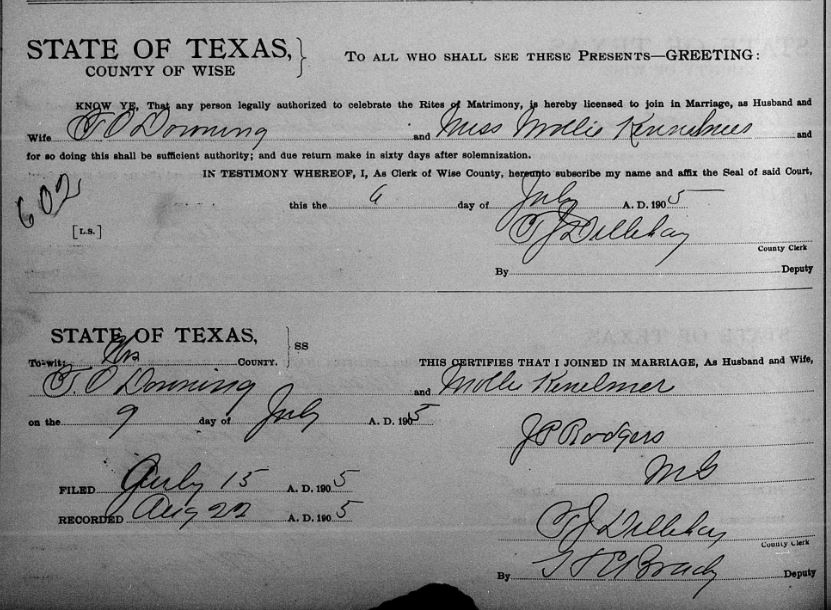 STATE OF TEXAS, } TO ALL WHO SHALL SEE THESE PRESENTS—GREETING:
COUNTY OF WISE
KNOW YE, That any person legally authorized to celebrate the Rites of Matrimony, is hereby licensed to join in Marriage, as Husband and
Wife T O Downing and Miss Mollie and
for so doing this shall be sufficient authority; and due return make in sixty days after solemnization.
IN TESTIMONY WHEREOF, I, As Clerk of Wise County, hereunto subscribe my name and affix the Seal of said Court,
602
this the 6 day of July A. D. 1905
[L.S.] C J Dillehay
County Clerk
By Deputy
STATE OF TEXAS, } SS
To-wit: COUNTY. THIS CERTIFIES THAT I JOINED IN MARRIAGE, As Husband and Wife,
T. O Downing and Mollie Kenelmer
on the 9 day of July A. D. 1905
J P Rodgers
M G
FILED July 15 A. D. 1905
RECORDED Aug 22 A. D. 1905
C J Dillehay
County Clerk
By Brady Deputy